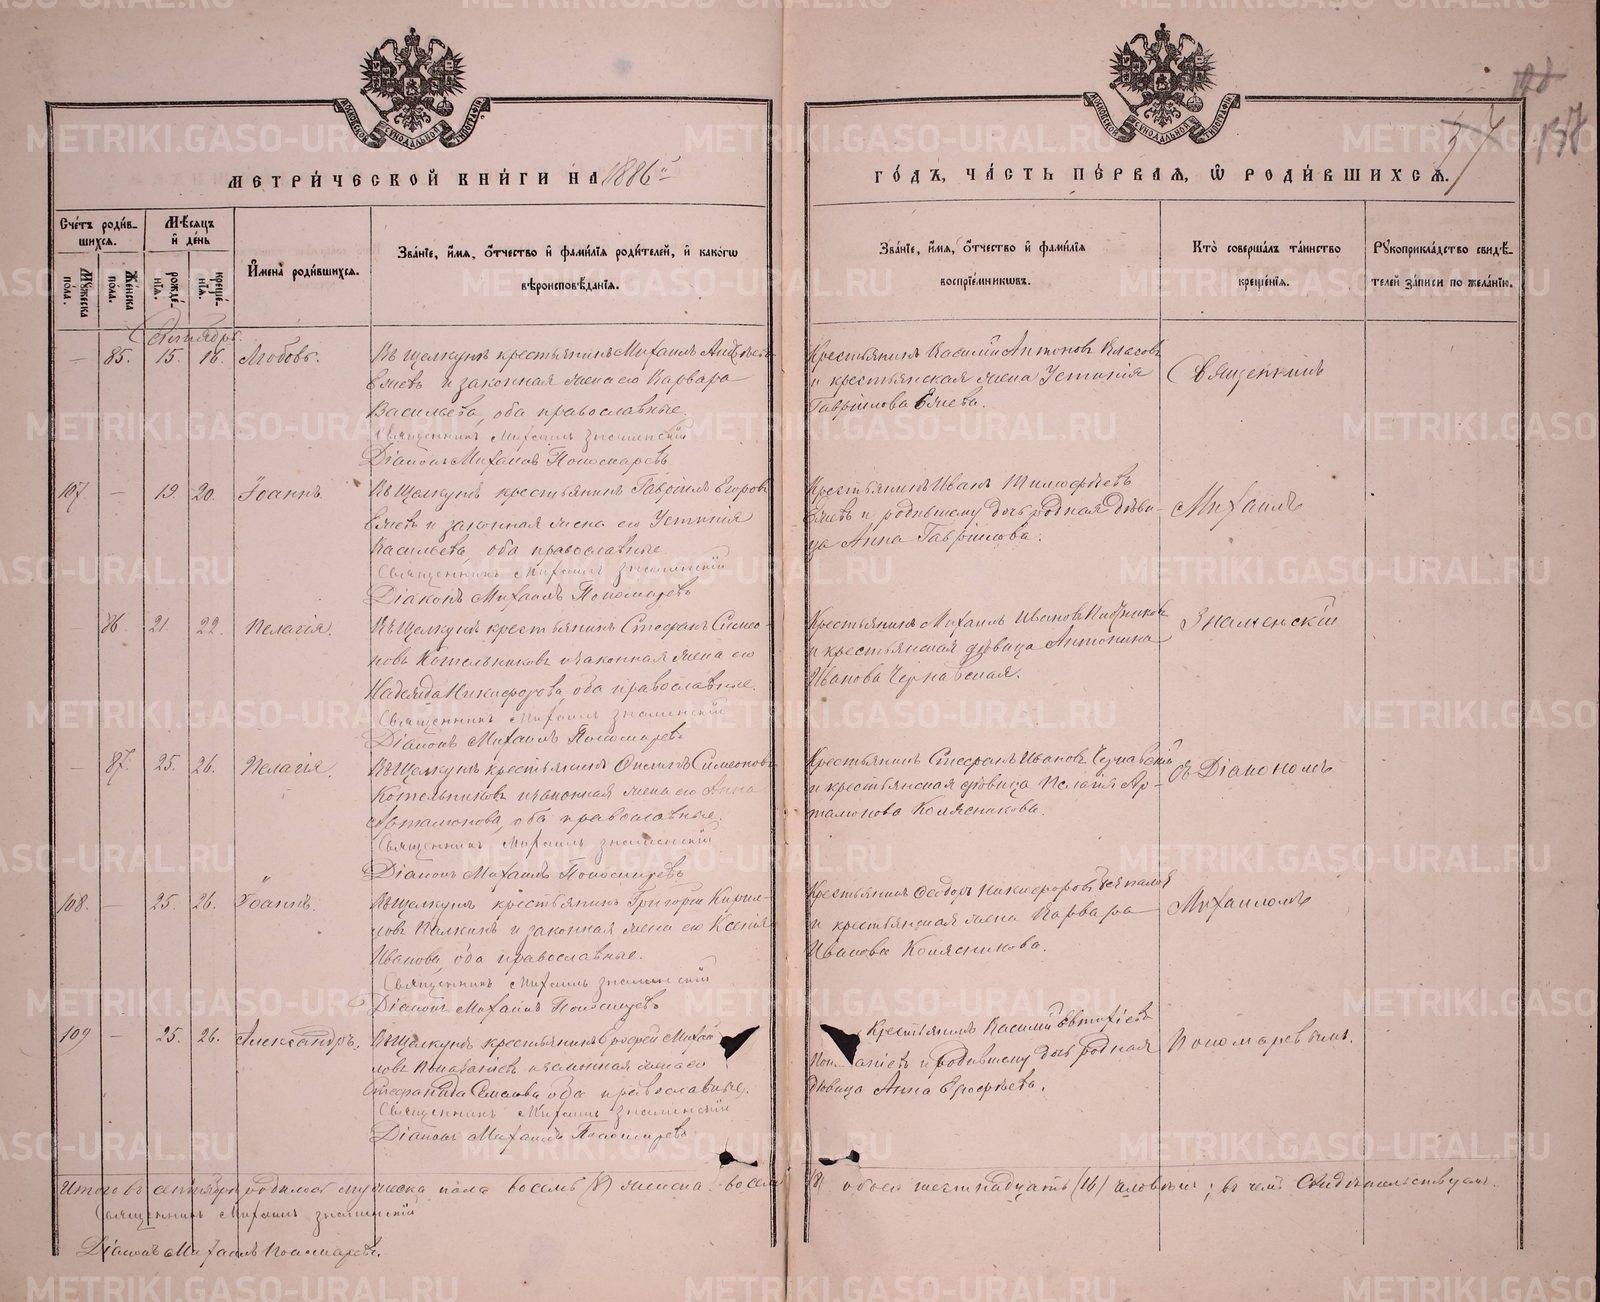 МЕТРИ́ЧЕСКОЙ КНИ́ГИ НА 1886й
ГО́ДЪ, ЧА́СТЬ ПЕ́РВАѦ, Ѡ҆ РОДИ́ВШИХСѦ.
57
128
137
Сче́тъ роди́в-
шихсѧ.
Мѣ́сѧцъ
и҆ де́нь
Мꙋ́жеска
по́ла.
Же́нска
по́ла.
рожде́-
нїѧ.
креще́-
нїѧ.
И҆мена̀ роди́вшихсѧ.
Зва́нїе, и҆́мѧ, ѻ҆́тчество и҆ фами́лїѧ роди́телей, и҆ како́гѡ
вѣроисповѣ́данїѧ.
Зва́нїе, и҆́мѧ, ѻ҆́тчество и҆ фами́лїѧ
воспрїе́мникѡвъ.
Кто̀ соверша́лъ та́инство
креще́нїѧ.
Рꙋкоприкла́дство свидѣ́-
телей за́писи по жела́нїю.
Сентябрь.
— 85. 15. 16. Любовь.
Въ Щелкунѣ крестьянинъ Михаилъ
и законная жена его Варвара
Васильева, оба православные.
Священникъ Михаилъ Знаменскій
Діаконъ Михаилъ Пономаревъ
Крестьянинъ Василій Антоновъ Власовъ
и крестьянская жена Устинія
Гавріилова
Священникъ
107 — 19. 20. Іоаннъ.
Въ Щелкунѣ крестьянинъ Гавріилъ Егоровъ
и законная жена его Устинія
Васильева, оба православные
Священникъ Михаилъ Знаменскій
Діаконъ Михаилъ Пономаревъ
Крестьянинъ Иванъ Тимофѣевъ
и родившему дочь родная дѣви-
ца Анна Гавріилова.
Михаилъ
— 86. 21 22. Пелагія.
Въ Щелкунѣ крестьянинъ Стефанъ Симео-
новъ Котельниковъ и законная жена его
Надежда Никифорова, оба православные.
Священникъ Михаилъ Знаменскій
Діаконъ Михаилъ Пономаревъ
Крестьянинъ Михаилъ Ивановъ
и крестьянская дѣвица Антонина
Иванова Чернавская.
Знаменскій
— 87. 25. 26. Пелагія.
Въ Щелкунѣ крестьянинъ Симеоновъ
Котельниковъ и законная жена его Анна
Артамонова, оба православные.
Священникъ Михаилъ Знаменскій
Діаконъ Михаилъ Пономаревъ
Крестьянинъ Стефанъ Ивановъ Чернавскій
и крестьянская дѣвица Пелагія Ар-
тамонова Колясникова.
съ Діакономъ
108. — 25. 26. Іоаннъ.
Въ Щелкунѣ крестьянинъ Григорій Кирил-
ловъ Палкинъ и законная жена его Ксенія
Иванова, оба православные.
Священникъ Михаилъ Знаменскій
Діаконъ Михаилъ Пономаревъ
Крестьянинъ Ѳеодоръ Никифоровъ
и крестьянская жена Варвара
Иванова Колясникова.
Михаиломъ
109 — 25. 26. Александръ.
Въ Щелкунѣ крестьянинъ Ерофей Михай-
ловъ и законная жена его
Стефанида Семенова оба православные.
Священникъ Михаилъ Знаменскій
Діаконъ Михаилъ Пономаревъ
Крестьянинъ Василій
и родившему дочь родная
дѣвица Анна Ерофѣева.
Пономаревымъ.
Итого въ сентябрѣ родилось мужеска пола восемь (8) женска восемь
(8) обоего шестнадцать (16) человѣкъ; въ чемъ свидѣтельствуемъ.
Священникъ Михаилъ Знаменскій
Діаконъ Михаилъ Пономаревъ.